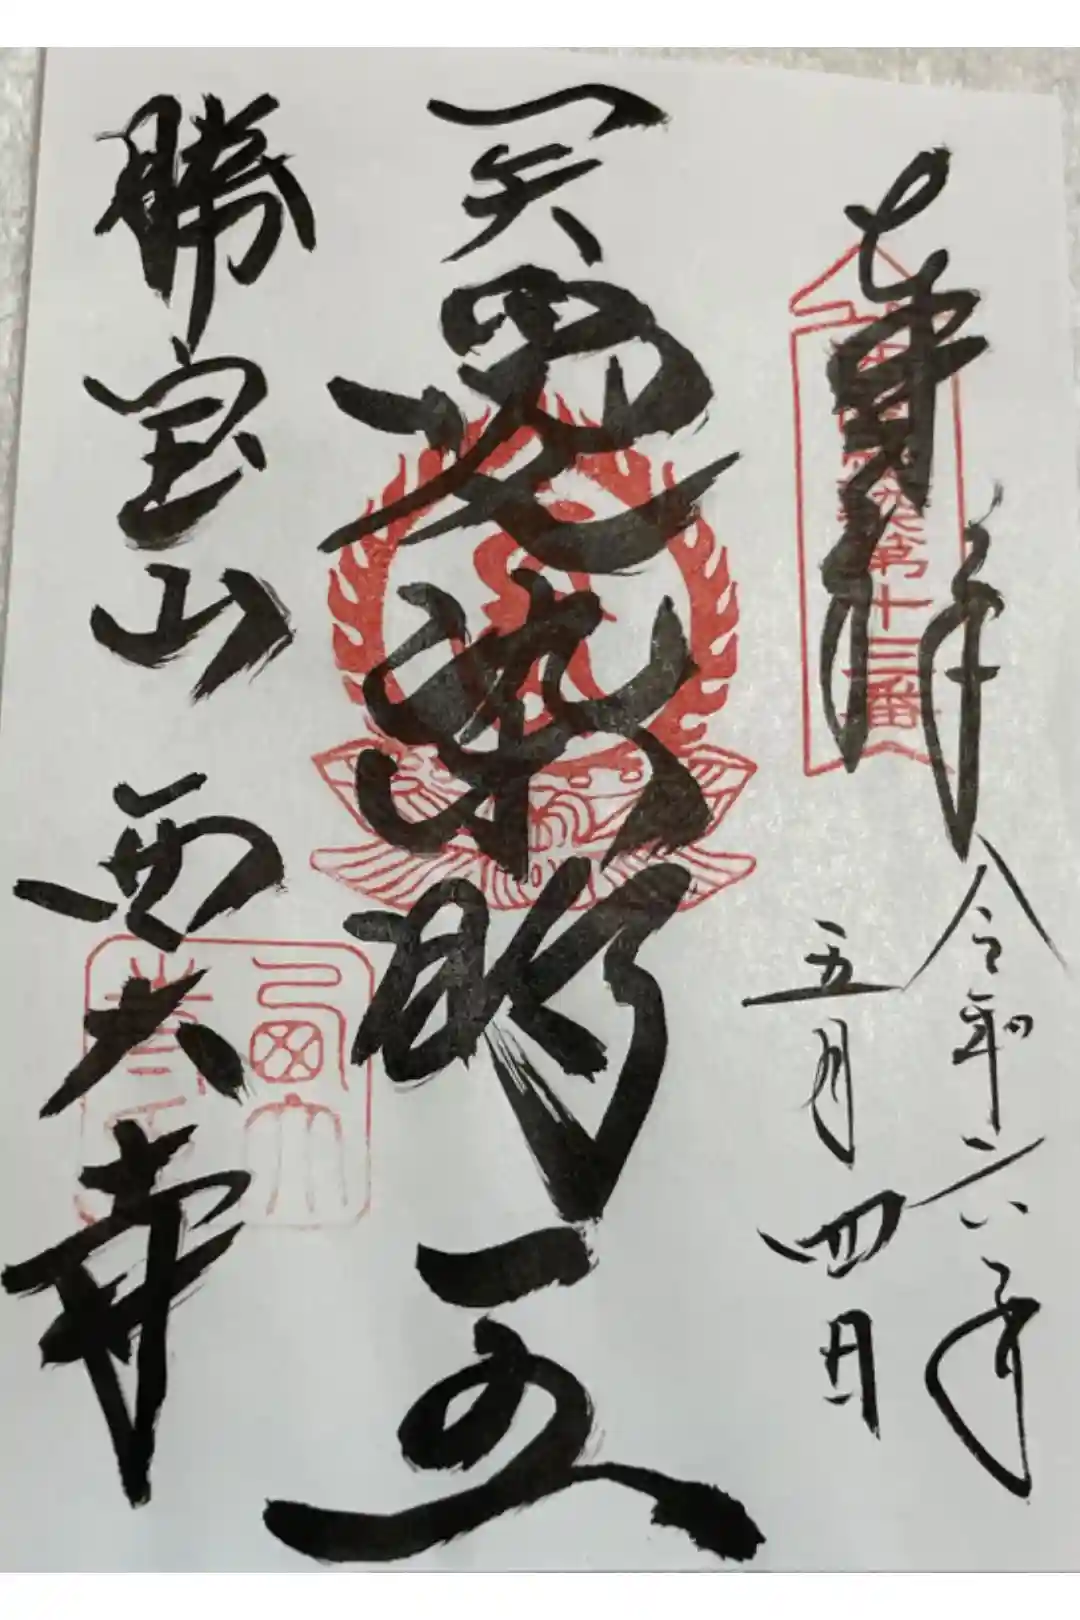 奉拝
第十三番
令和六年
五月四日
愛染明王
勝宝山 西大寺